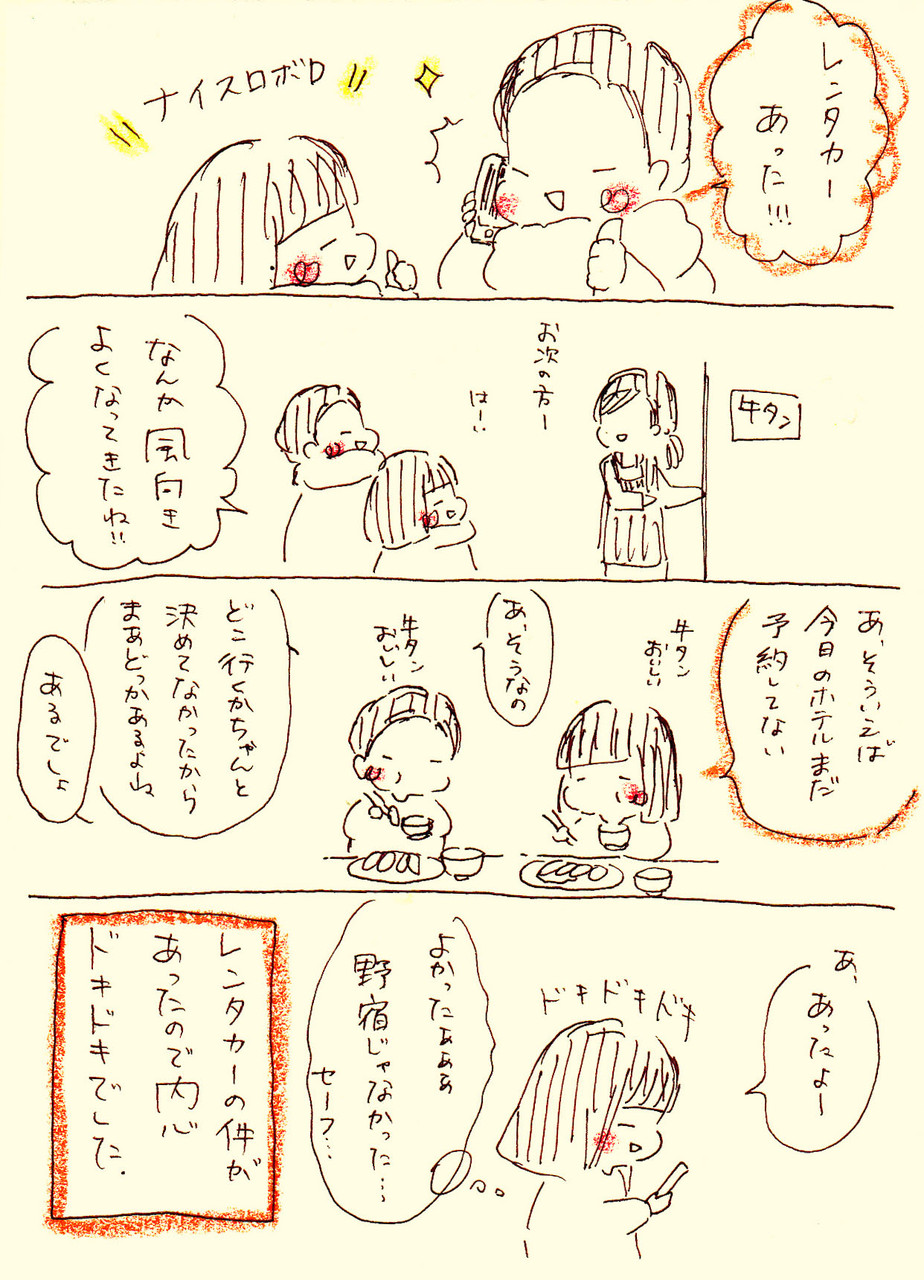 レンタカー
あった!!!
ナイスロボロ
牛タン
お次の方ー
はーい
なんか風向き
よくなってきたね!!
あ、そういえば
今日のホテルまだ
予約してない
牛タン
おいしい
あ、そうなの
牛タン
おいしい
どこ行くかちゃんと
決めてなかったから
まあどっかあるよね
あるでしょ
あ、
あったよー
ドキドキドキ
よかったあああ
野宿じゃなかった…
セーフ…
レンタカーの件が
あったので内心
ドキドキでした.